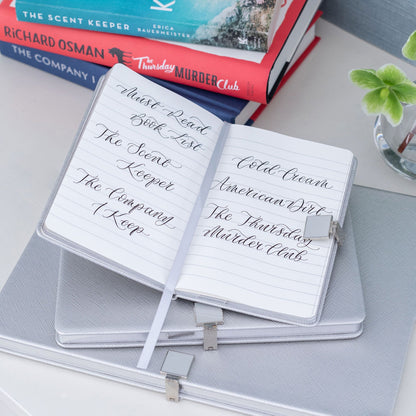 THE SCENT KEEPER
ERICA
BAUERMEISTER
RICHARD OSMAN
The
Thursday
MURDER CLUB
THE COMPANY
Must Read
Book List
The Scent
Keeper
The Company
I Keep
Cold Cream
American Dirt
The Thursday
Murder Club